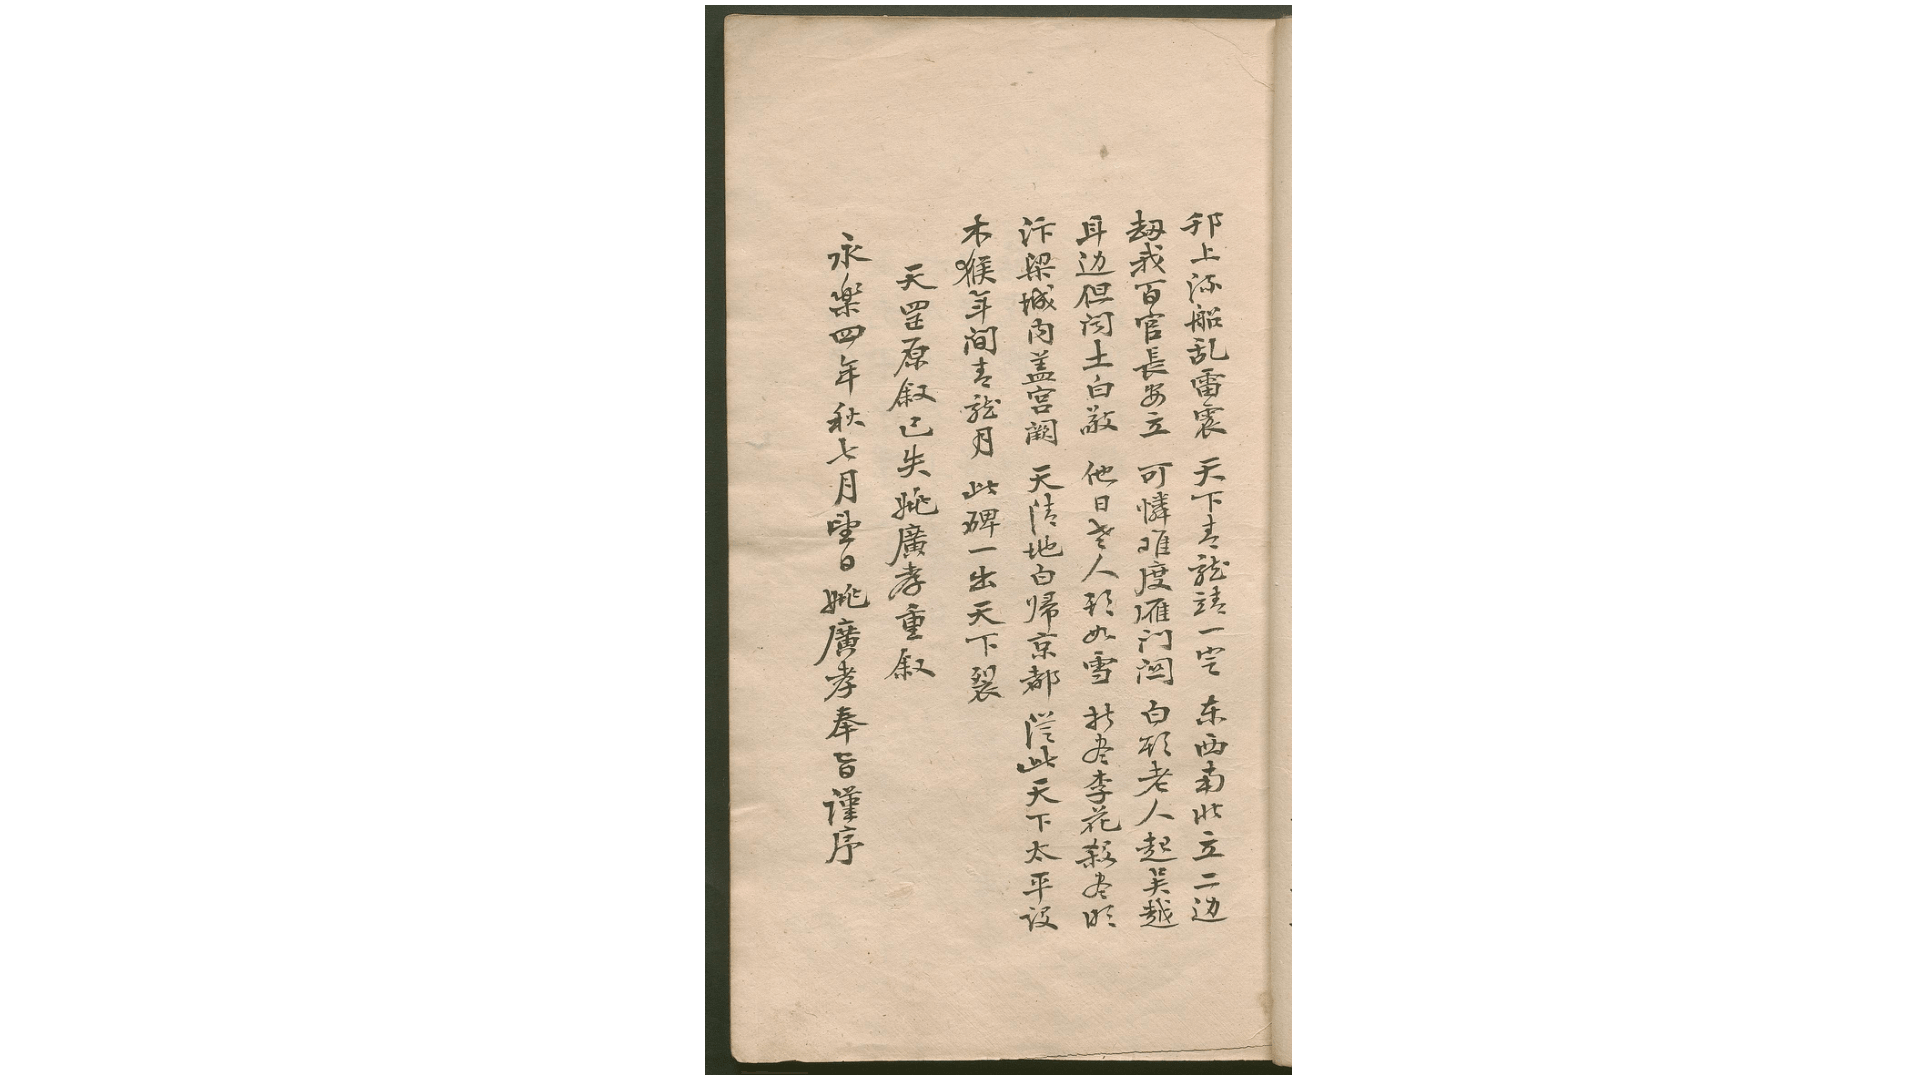 邗上添船乱雷震 天下青龍靖一空 东西南北立二边
劫我百官長安立 可憐难度雁门関 白頭老人起吴越
耳边但闻土白敲 他日老人頭如雪 折尽李花殺尽明
汴梁城内盖宫阙 天清地白帰京都 従此天下太平設
木猴年间青龍月 此碑一出天下裂
天罡原叙已失姚廣孝重叙
永楽四年秋七月望日姚廣孝奉旨谨序